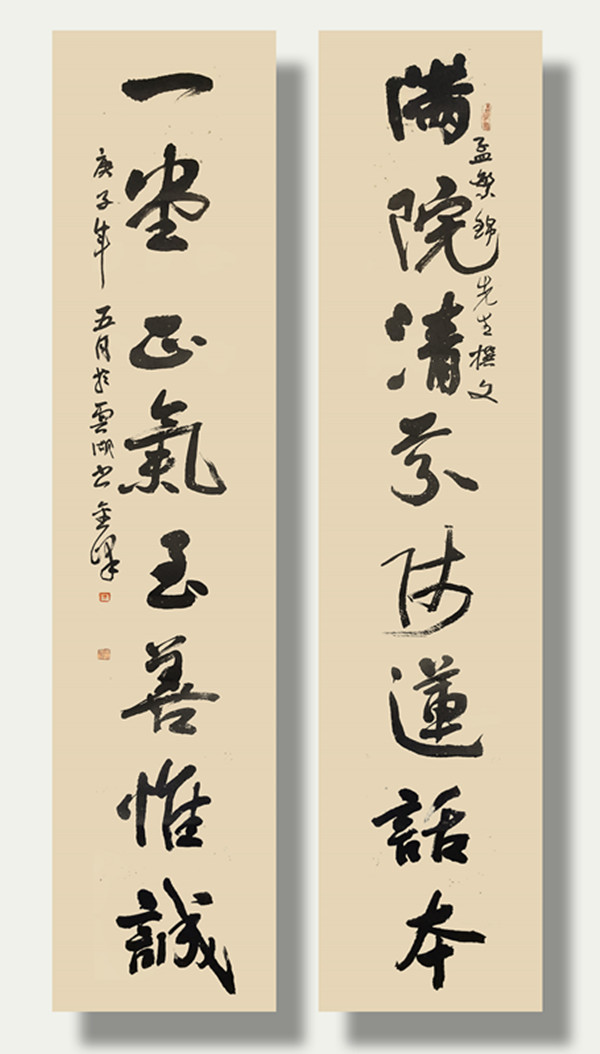 孟繁錦先生撰文
滿院清芬蓮話本
一堂正氣至善惟誠
庚子年五月於雲湖書金